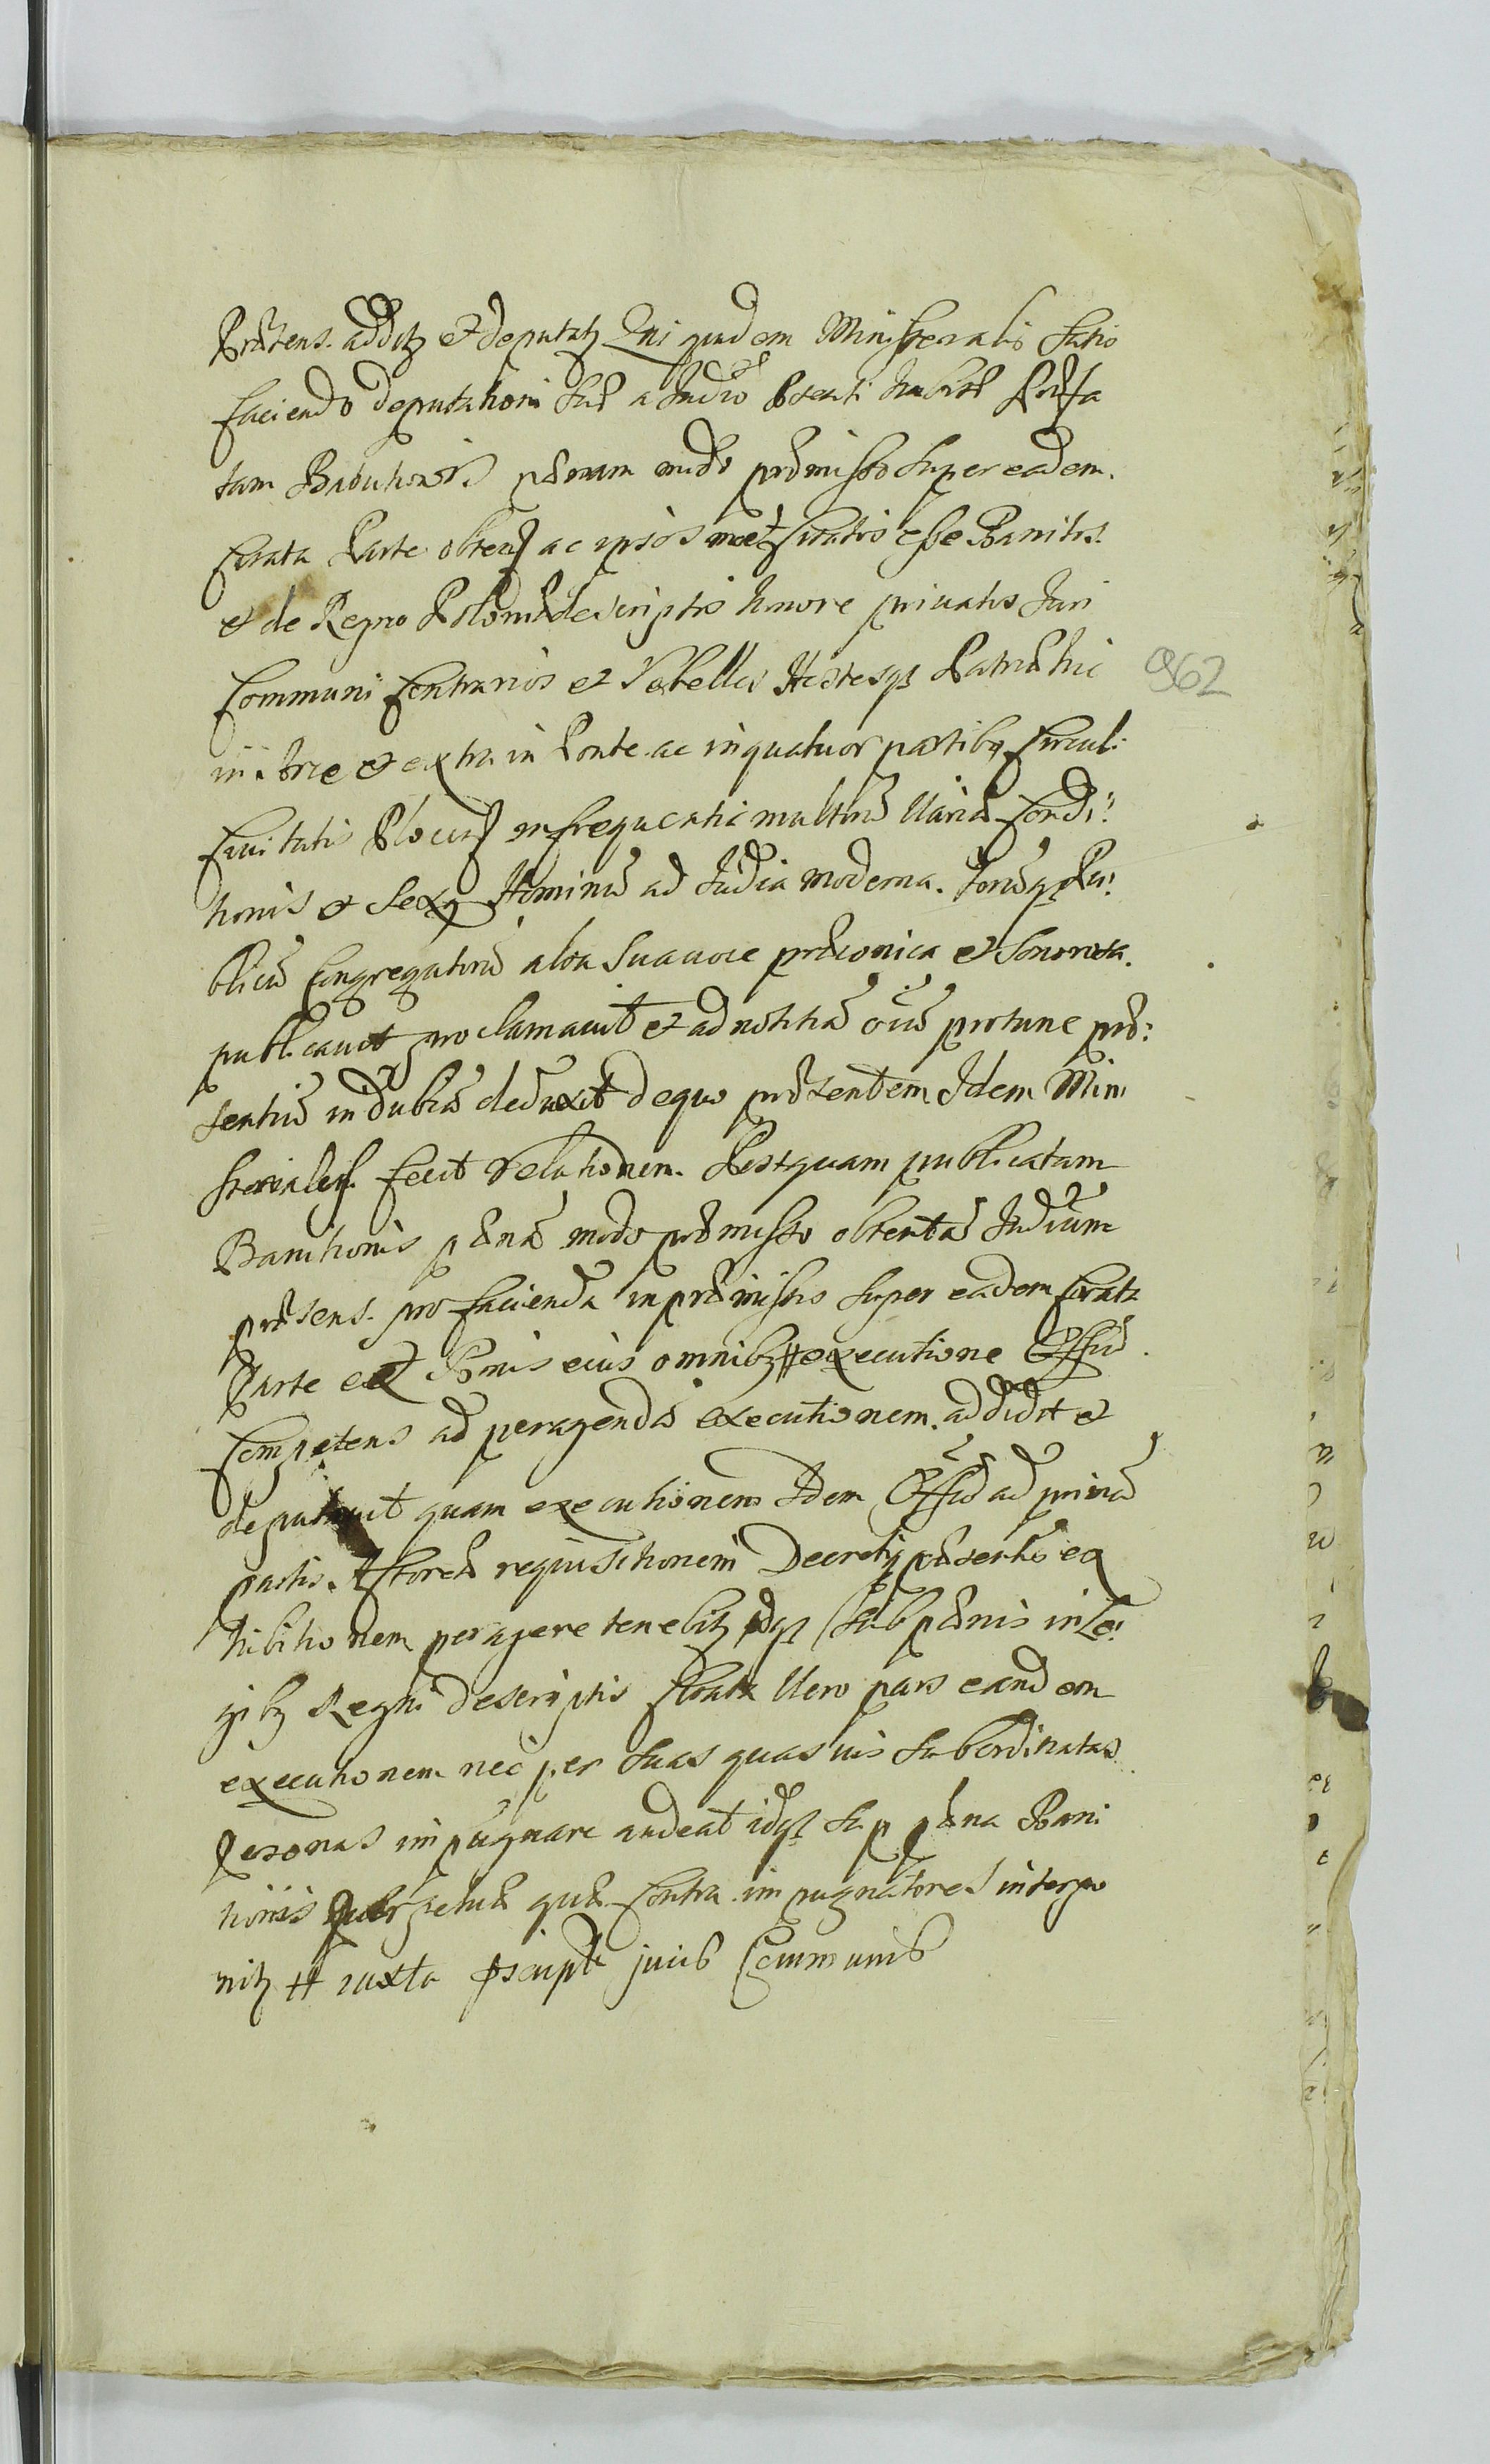 Prætens. additq et deputatq Qui quidem Ministerialis Satis
faciendo deputationi Suæ a Judio Psenti habitæ
tam Banitionis pænam modo præmisso Super eadem.
Citata Parte obten ac ipsos citatos esse Banitos.
et de Regno Poloniæ descriptos honore privatos Juri
Communi Contrarios et Rebelles Hostesqz Patriæ hic
962
in Arce et extra in Ponte ac in quatuor partibq Circuli
Civitatis Plocen in frequentia multorū Variæ Condi:
tionis et Sexq Hominū ad Judia moderna. Pu:
blicū Congregatorū alta Sua voce præconica et Sonorosa.
publicavit proclamavit et ad notitiā oīū protunc præ:
sentiū indubiā deduxit de quo præsentem Idem Mini
sterialis fecit relationem. Postquam publicatam
Banitionis pænā modo præmisso obtentā Judium
præsens. pro facienda in præmissis Super eadem Citata
Parte et Bonis eius omnibq executione Officiū
Competens ad peragendā executionem. addidit et
deputavit quam executionem Idem Officiū ad primā
partis Actoreæ requisitionem Decretiq præsentis ex
hibitionem peragere tenebitq idqz Sub pænis in Le:
gibq Regni descriptis Citata Vero pars eandem
executionem nec per Suas quasvis Subordinatas
Personas impugnare audeat idqz Sup pæna Bani
tionis perpetuæ quæ Contra impugnatores interpo
nitq iuxta Pscript juris Communis